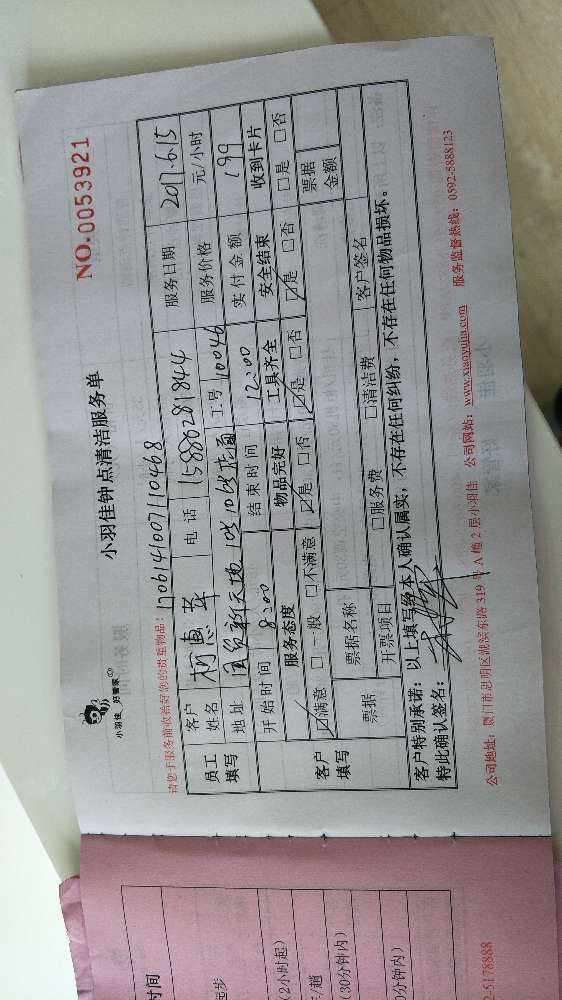 小羽佳 好管家
小羽佳钟点清洁服务单
NO.0053921
请您于服务前收拾好您的贵重物品！ 1706141007110468
员工填写 客户姓名 柯惠萍 电话 15880281844 服务日期 2017.6.15
地址 国贸新天地 工号 10046 服务价格 元/小时
开始时间 8:00 结束时间 12:00 实付金额 199
客户填写 服务态度 物品完好 工具齐全 安全结束 收到卡片
☑满意 □一般 □不满意 ☑是 □否 ☑是 □否 ☑是 □否 □是 □否
票据 票据名称 票据金额
开票项目 □服务费 □清洁费 客户签名
客户特别承诺：以上填写经本人确认属实，不存在任何纠纷，不存在任何物品损坏。
特此确认签名：
公司地址：厦门市思明区湖滨东路 319 号 A 幢 2 层小羽佳 公司网站：www.xiaoyujia.com 服务监督热线：0592-5888123
时间
起步
(2小时起)
/趟
(30分钟内)
0分钟内)
-5178888